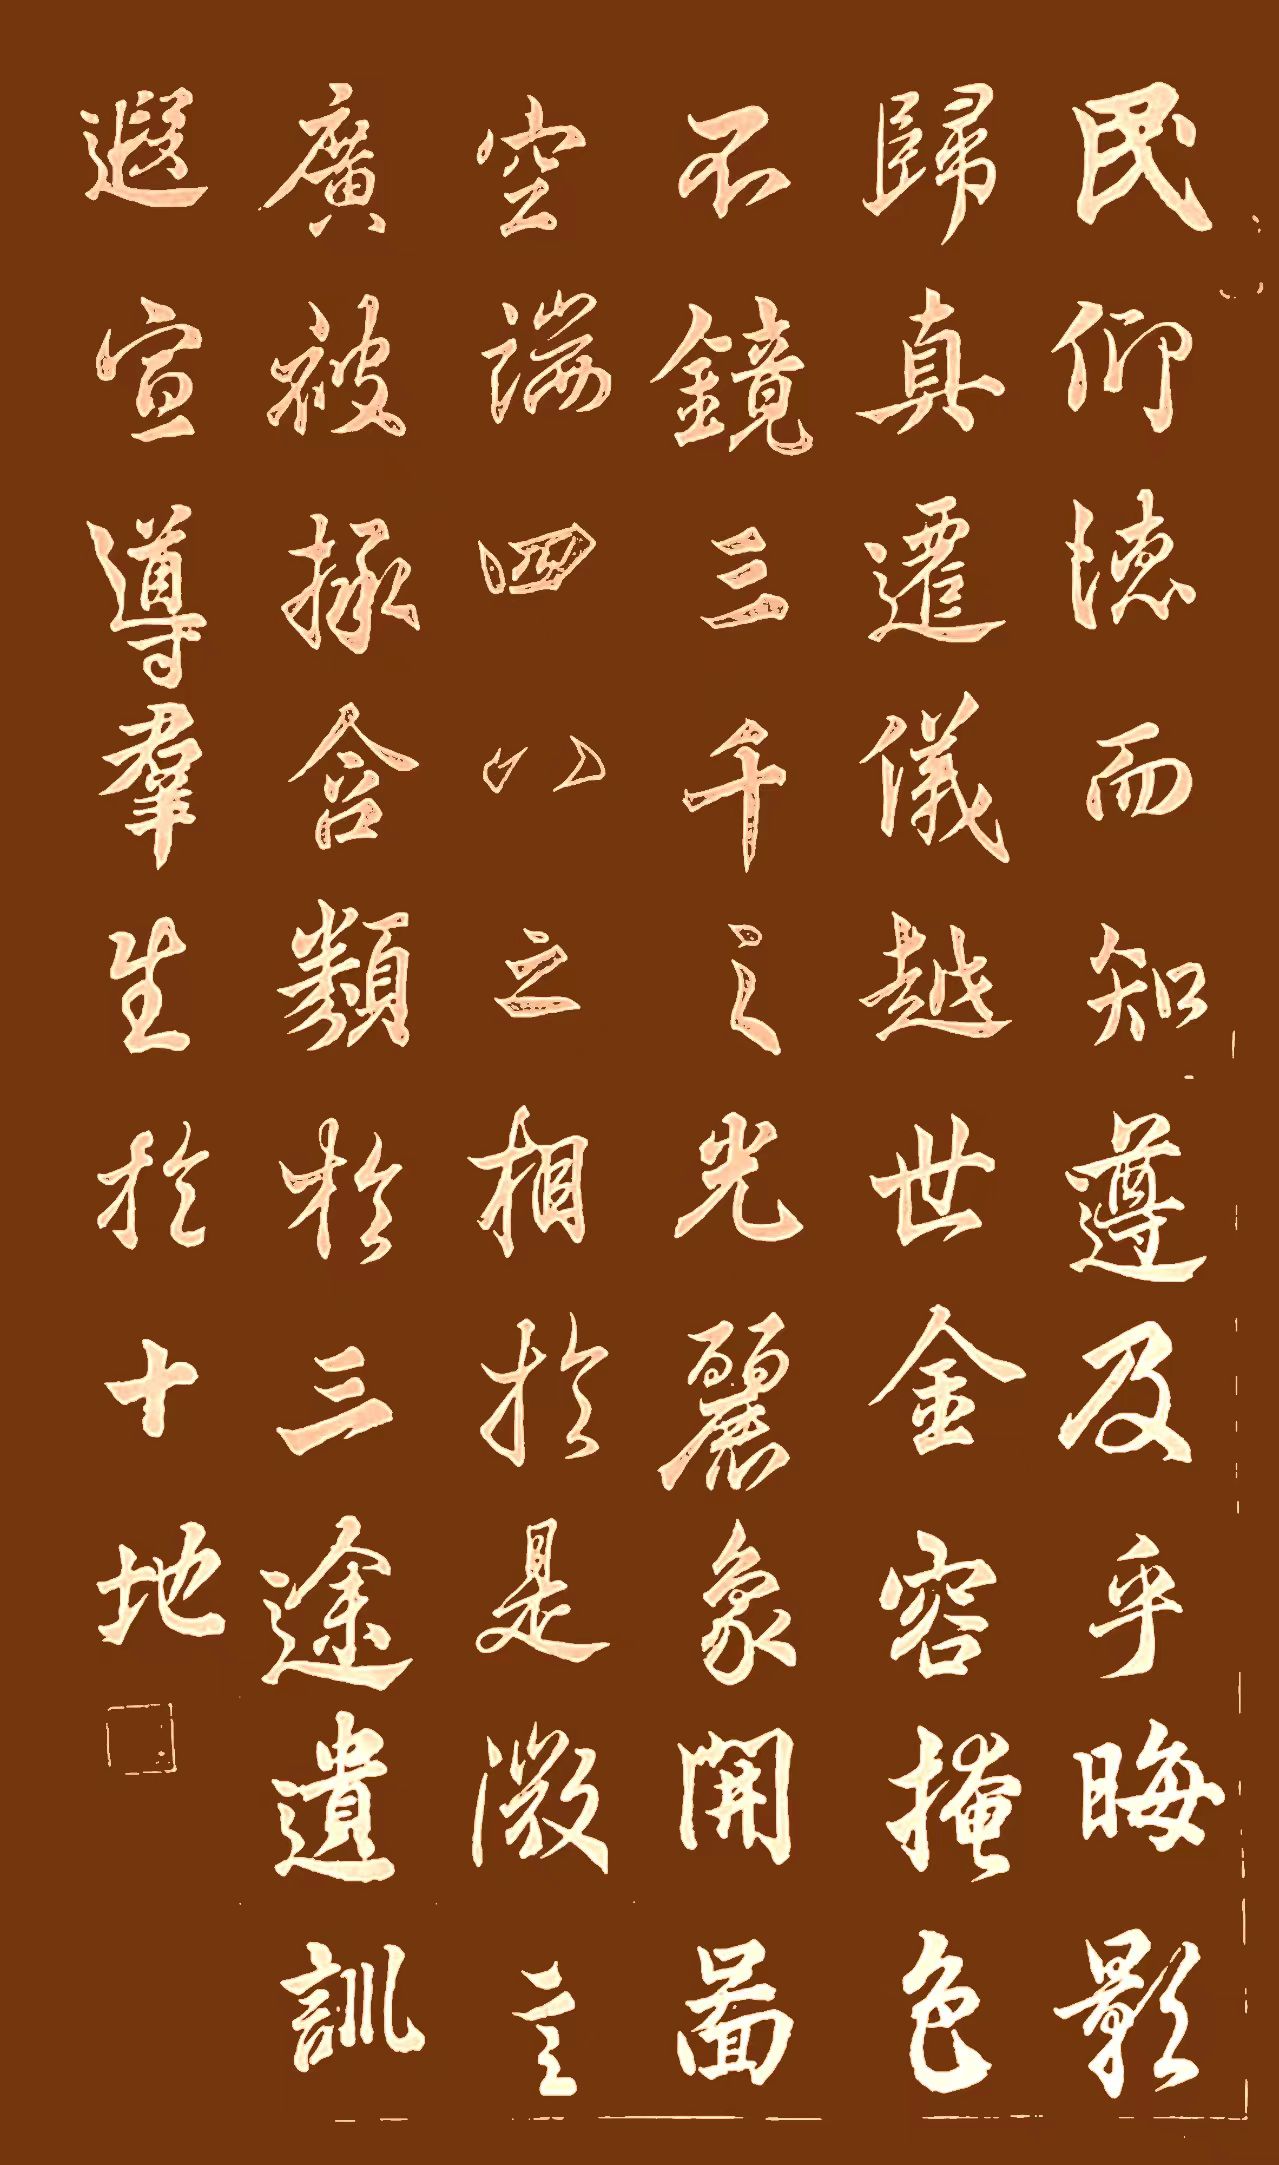 民仰德而知遵及乎晦影
歸真遷儀越世金容掩色
不鏡三千之光麗象開圖
空端四八之相於是微言
廣被拯含類於三途遺訓
遐宣導羣生於十地